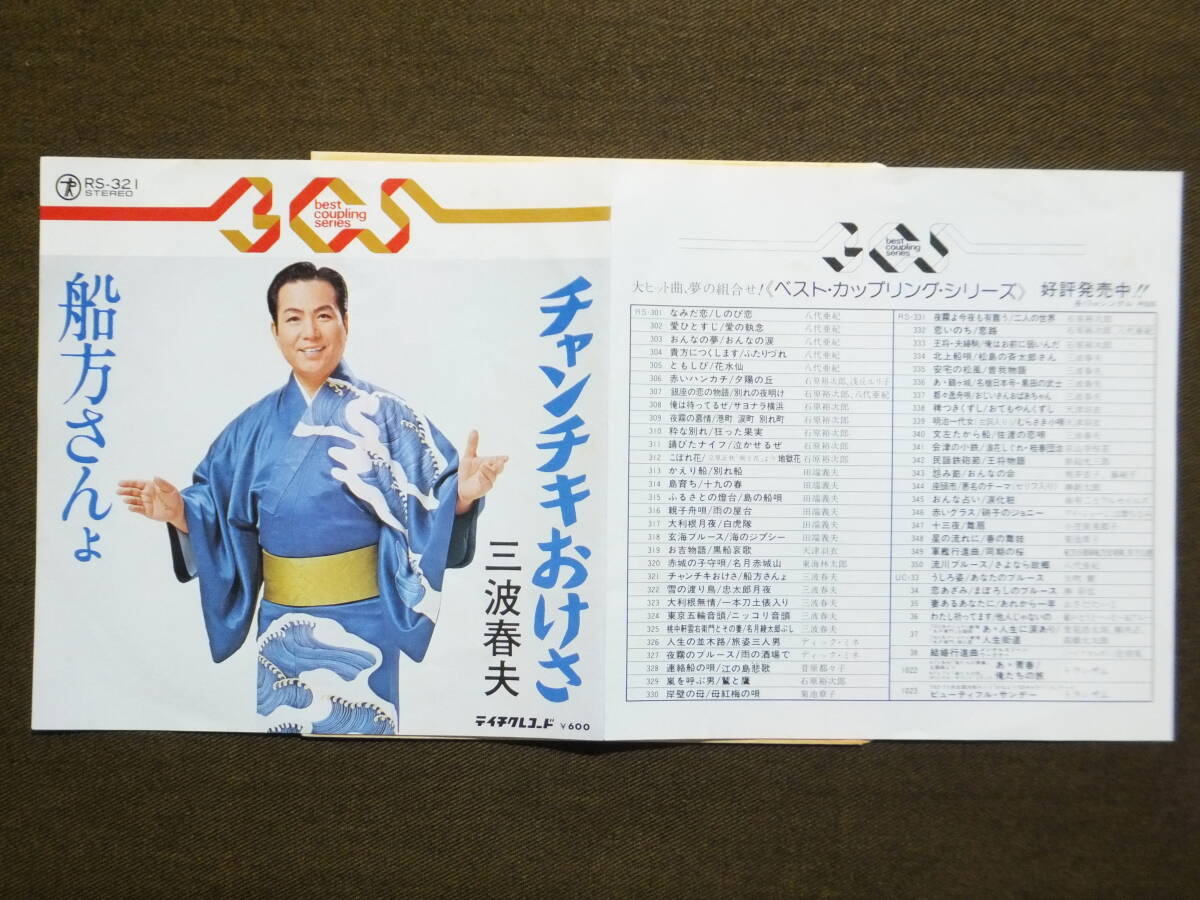 RS-321
STEREO
best
coupling
series
チャンチキおけさ
三波春夫
船方さんよ
テイチクレコード ¥600
best
coupling
series
大ヒット曲、夢の組合せ!《ベスト・カップリング・シリーズ》 好評発売中!!
RS-301 なみだ恋/しのび恋 八代亜紀
302 愛ひとすじ/愛の執念 八代亜紀
303 おんなの夢/おんなの涙 八代亜紀
304 貴方につくします/ふたりづれ 八代亜紀
305 ともしび/花水仙 八代亜紀
306 赤いハンカチ/夕陽の丘 石原裕次郎、浅丘ルリ子
307 銀座の恋の物語/別れの夜明け 石原裕次郎、八代亜紀
308 俺は待ってるぜ/サヨナラ横浜 石原裕次郎
309 夜霧の慕情/港町 涙町 別れ町 石原裕次郎
310 粋な別れ/狂った果実 石原裕次郎
311 錆びたナイフ/泣かせるぜ 石原裕次郎
312 こぼれ花/地獄花 石原裕次郎
313 かえり船/別れ船 田端義夫
314 島育ち/十九の春 田端義夫
315 ふるさとの燈台/島の船唄 田端義夫
316 親子舟唄/雨の屋台 田端義夫
317 大利根月夜/白虎隊 田端義夫
318 玄海ブルース/海のジプシー 田端義夫
319 お吉物語/黒船哀歌 天津羽衣
320 赤城の子守唄/名月赤城山 東海林太郎
321 チャンチキおけさ/船方さんよ 三波春夫
322 雪の渡り鳥/忠太郎月夜 三波春夫
323 大利根無情/一本刀土俵入り 三波春夫
324 東京五輪音頭/ニッコリ音頭 三波春夫
325 桃中軒雲右衛門とその妻/名月綾太郎ぶし 三波春夫
326 人生の並木路/旅姿三人男 ディック・ミネ
327 夜霧のブルース/雨の酒場で ディック・ミネ
328 連絡船の唄/江の島悲歌 菅原都々子
329 嵐を呼ぶ男/鷲と鷹 石原裕次郎
330 岸壁の母/母紅梅の唄 菊池章子
RS-331 夜霧よ今夜も有難う/二人の世界 石原裕次郎
332 恋いのち/恋路 石原裕次郎、八代亜紀
333 王将・夫婦駒/俺はお前に弱いんだ 石原裕次郎
334 北上船唄/松島の斎太郎さん 三波春夫
335 安宅の松風/曽我物語 三波春夫
336 あゝ鶴ヶ城/名槍日本号・黒田の武士 三波春夫
337 都々逸舟唄/おじいさんおばあちゃん 三波春夫
338 稗つきくずし/おてもやんくずし 天津羽衣
339 明治一代女/むらさき小唄
340 文左たから船/佐渡の恋唄 三波春夫
341 会津の小鉄/
342 民謡鉄砲節/王将物語
343 怨み節/おんなの命
344 座頭市/悪名のテーマ(セリフ入り)
345 おんな占い/涙化粧
346 赤いグラス/硝子のジョニー
347 十三夜/舞扇
348 星の流れに/春の舞妓
349 軍艦行進曲/同期の桜
350 流川ブルース/さよなら故郷 八代亜紀
UC-33 うしろ姿/あなたのブルース
34 恋あざみ/まぼろしのブルース
35 妻あるあなたに/あれから一年
36 わたし祈ってます/他人じゃないの
37 あゝ人生に涙あり/人生街道
38 結婚行進曲
1022 あゝ青春/俺たちの旅 トランザム
1023 ビューティフル・サンデー トランザム